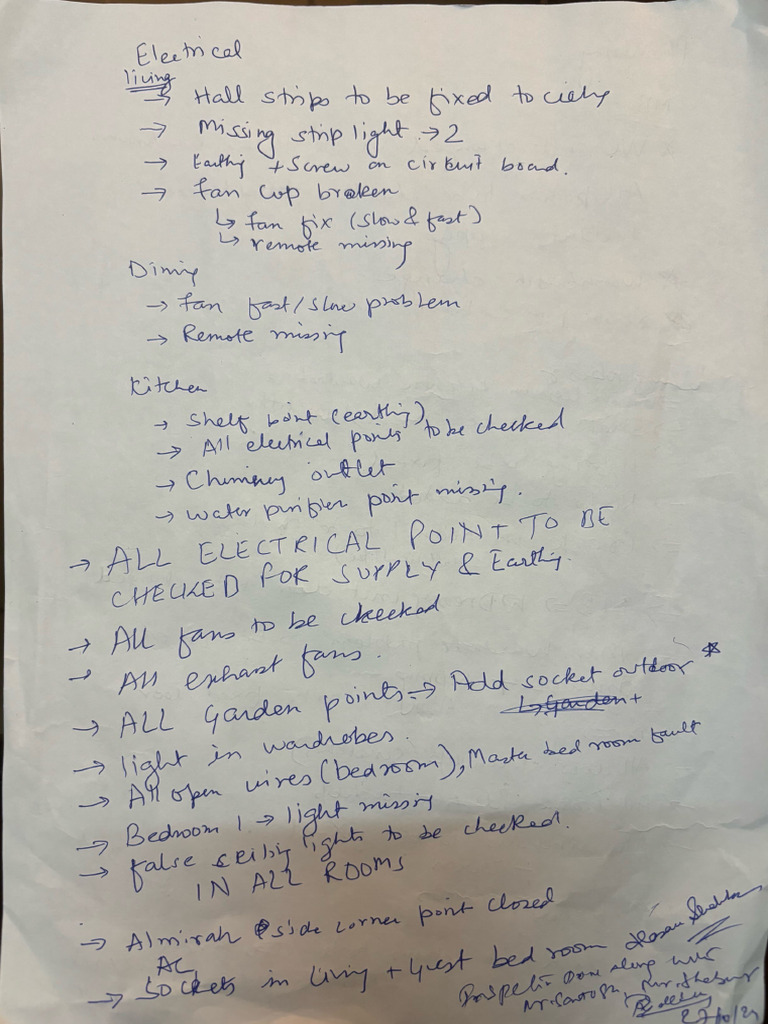 Electrical
living
→ Hall strips to be fixed to
→ Missing strip light → 2
→ Earthing + screw on circuit board.
→ fan cup broken
↳ fan fix (slow & fast)
↳ remote missing
Dining
→ fan fast/slow problem
→ Remote missing
Kitchen
→ Shelf point (earthing)
→ All electrical points to be checked
→ Chimney outlet
→ water purifier point missing.
→ ALL ELECTRICAL POINT TO BE
CHECKED FOR SUPPLY & Earthing.
→ All fans to be checked
→ All exhaust fans.
→ ALL Garden points → Add socket outdoor *
→ light in wardrobes.
→ All open wires (bedroom), Master bed room fault
→ Bedroom 1 → light missing
→ false ceiling lights to be checked.
IN ALL ROOMS
→ Almirah side corner point closed
AC
→ Sockets in living + guest bed room
Done along with